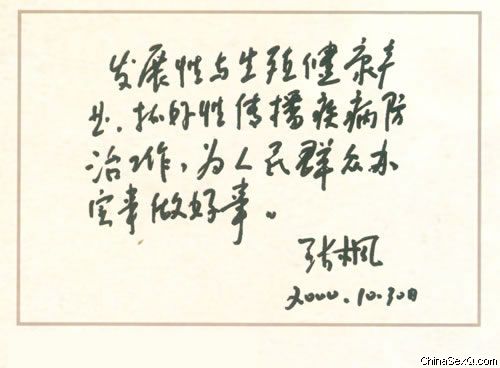 发展性与生殖健康产
业，抓好性传播疾病防
治工作，为人民群众办
实事做好事。
张枫
2000.10.30日
ChinaSexQ.com